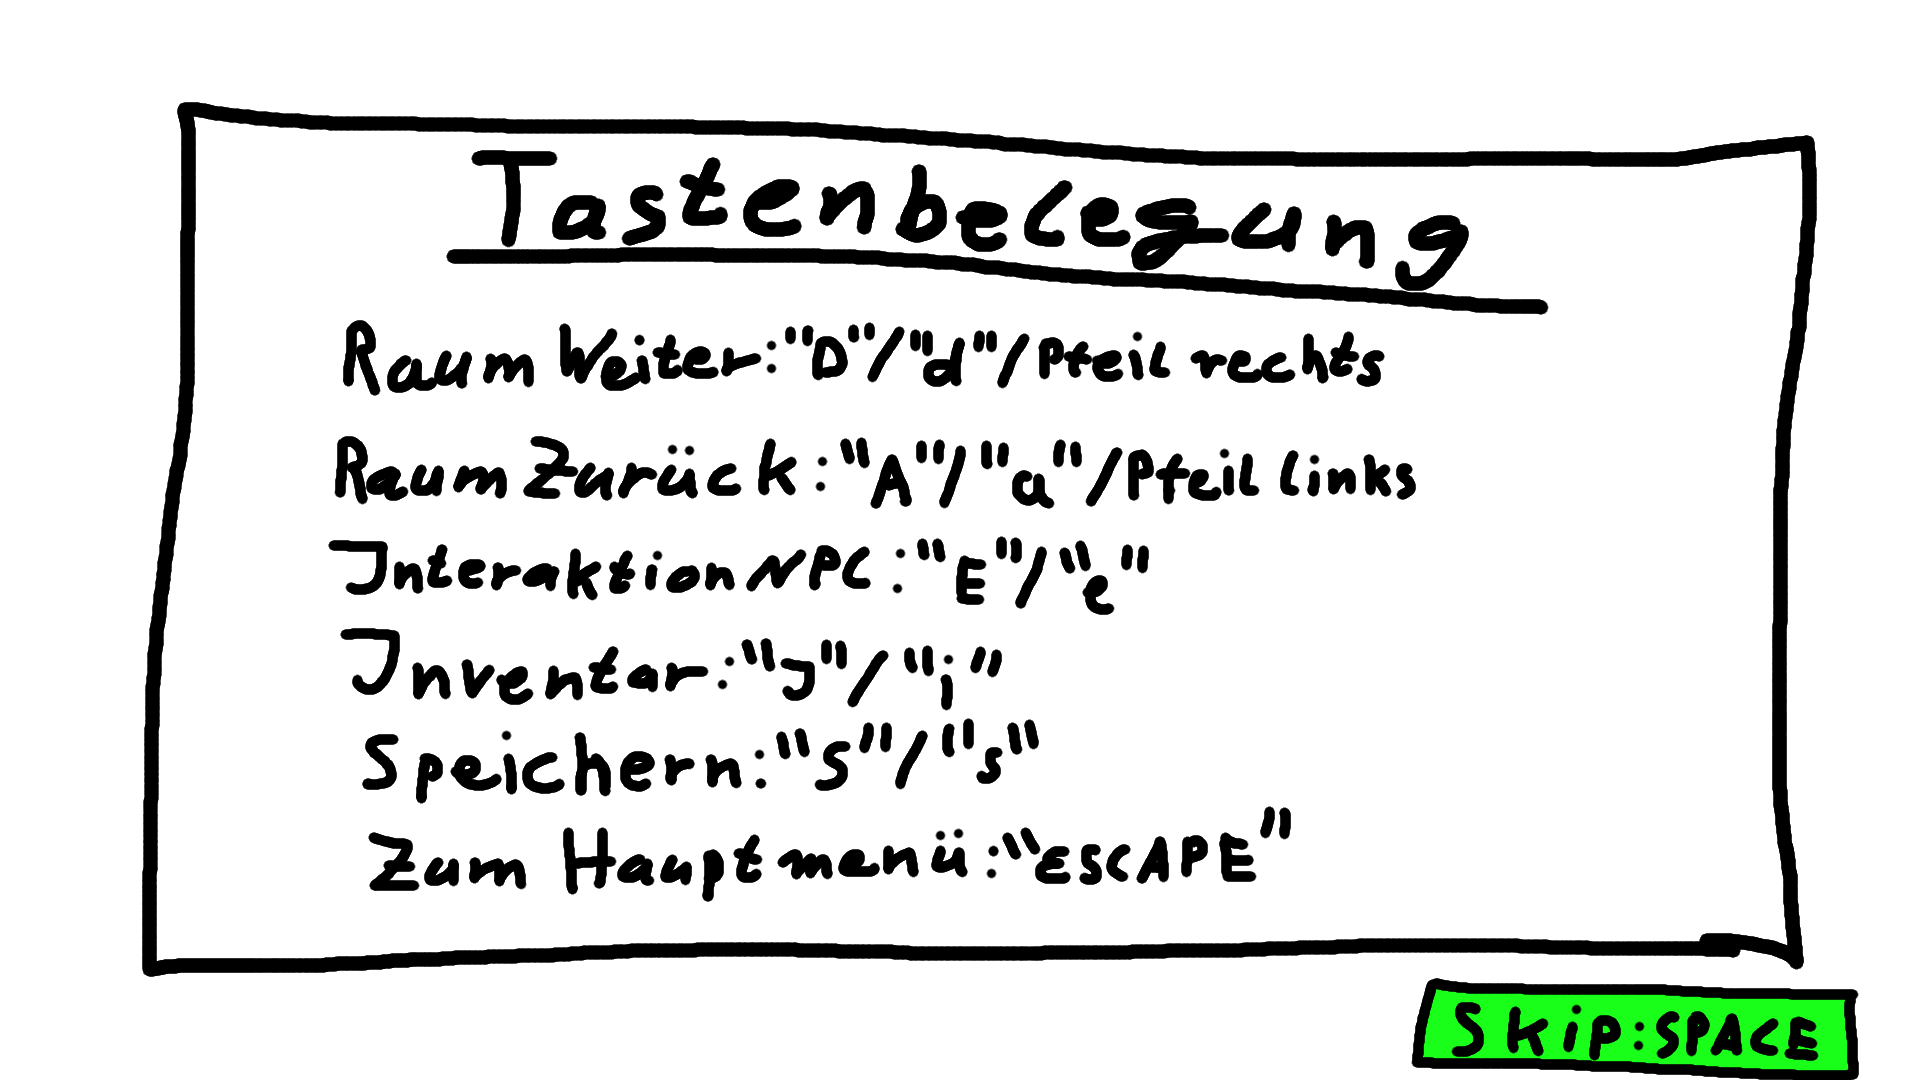 Tastenbelegung
Raum Weiter: "D"/"d"/Pfeil rechts
Raum Zurück: "A"/"a"/Pfeil links
Interaktion NPC: "E"/"e"
Inventar: "I"/"i"
Speichern: "S"/"s"
Zum Hauptmenü: "ESCAPE"
Skip: SPACE